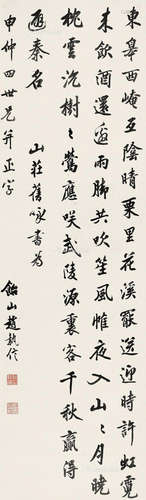 東皋西崦互陰晴栗里花溪罷送迎時許虹霓
來飲酒還邀雨腳共吹笙風帷夜入山山月曉
枕雲沉樹樹鶯應笑武陵源裏客千秋贏得
避秦名 山莊舊咏書為
申仲四世兄并正字
飴山趙執信